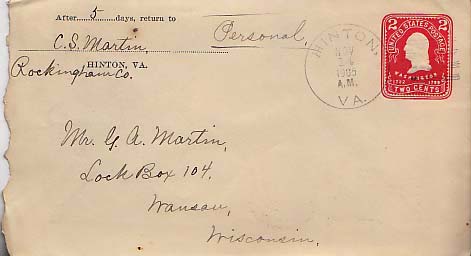 After 5 days, return to
C.S. Martin,
HINTON, VA.
Rockingham Co.
Personal,
HINTON,
NOV
1905
A.M.
VA.
2 UNITED STATES POSTAGE 2
WASHINGTON
1732 1799
TWO CENTS
Mr. G. A. Martin,
Lock Box 104,
Wausau,
Wisconsin.